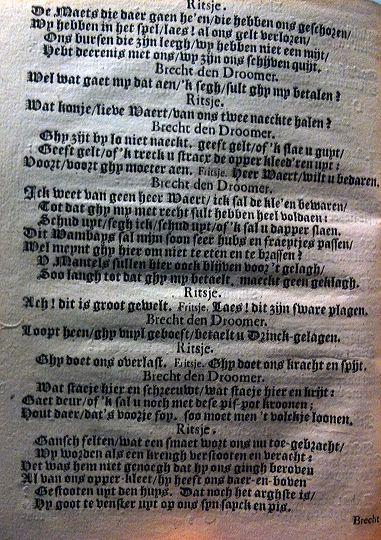 Ritsje.
De Maets die daer gaen he'en/die hebben ons geschoren/
Wy hebben in het spel/laes! al ons gelt verloren/
Ons bursen die zijn leegh/wy hebben niet een mijt/
Hebt deerenis met ons/wy zijn ons schijven quijt.
Brecht den Droomer.
Wel wat gaet my dat aen/'k segh/sult ghy my betalen?
Ritsje.
Wat konje/lieve Waert/van ons twee naeckte halen?
Brecht den Droomer.
Ghy zijt by lo niet naeckt. geeft gelt/of 'k slae u gupt/
Geeft gelt/of 'k treck u stracx de opper kleed'ren upt:
Voort/voort ghy moeter aen. Fritsje. Heer Waert/wilt u bedaren.
Brecht den Droomer.
Ick weet van geen heer Waert/ick sal de kle'en bewaren/
Tot dat ghy my met recht sult hebben heel voldaen:
Schud upt/segh ick/schud upt/of 'k sal u dapper slaen.
Dit Wambays sal mijn soon seer hubs en fraeptjes passen/
Wel meynt ghy hier om niet te eten en te brassen?
U Mantels sullen hier oock blijven voor 't gelagh/
Soo laugh tot dat ghy my betaelt. maeckt geen geklagh.
Ritsje.
Ach! dit is groot gewelt. Fritsje. Laes! dit zijn sware plagen.
Brecht den Droomer.
Loopt heen/ghy vuyl geboeft/betaelt u Drinck-gelagen.
Ritsje.
Ghy doet ons overlast. Fritsje. Ghy doet ons kracht en spijt.
Brecht den Droomer.
Wat staeje hier en schreeuwt/wat staeje hier en krijt:
Gaet deur/of 'k sal u noch met dese pis-pot kroonen:
Hout daer/dat's voorje foy. soo moet men 't volckje loonen.
Ritsje.
Gansch felten/wat een smaet wort ons nu toe-gebracht/
Wy worden als een krengh verstooten en veracht:
Het was hem niet genoegh dat hy ons gingh beroven
Al van ons opper-kleet/hy heeft ons daer-en-boven
Gestooten upt den huys. Dat noch het arghste is/
Hy goot te venster upt op ons syn sapck en pis.
Brecht